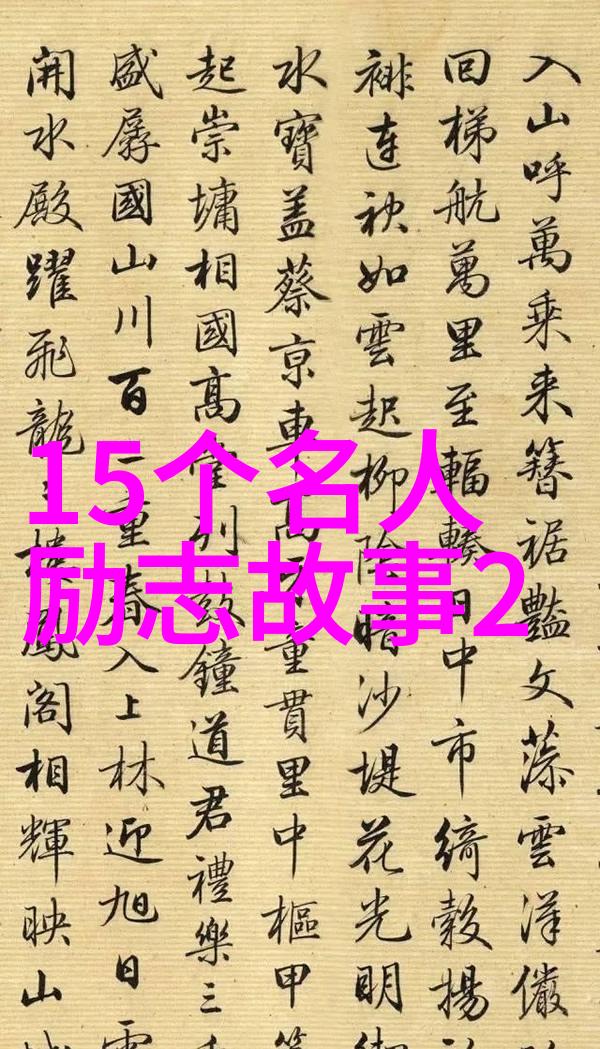 15个名人
励志故事2
入山呼萬乘来簪裾豔文藻雲洋儼
回梯航萬里至輻輳日中市綺縠揚
連袂如雲起柳陰暗沙堤花光明
水寶盖蔡京車童貫里中樞甲
起崇墉相國高列鼓鐘道君禮樂三
盛孱國山川百重春入上林迎旭日
開水殿躍飛龍鳳閣相輝映山